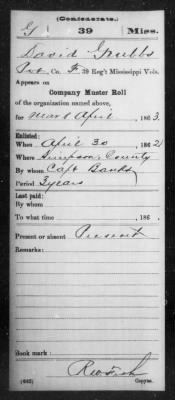 (Confederate.)
G 39 Miss.
David Grubbs
Pvt, Co. F, 39 Reg't Mississippi Vols.
Appears on
Company Muster Roll
of the organization named above,
for Mar & April, 1863.
Enlisted:
When April 30, 1862
Where Simpson County
By whom Capt Banks
Period 3 years
Last paid:
By whom
To what time , 186 .
Present or absent Present
Remarks:
Book mark:
(642) Copyist.